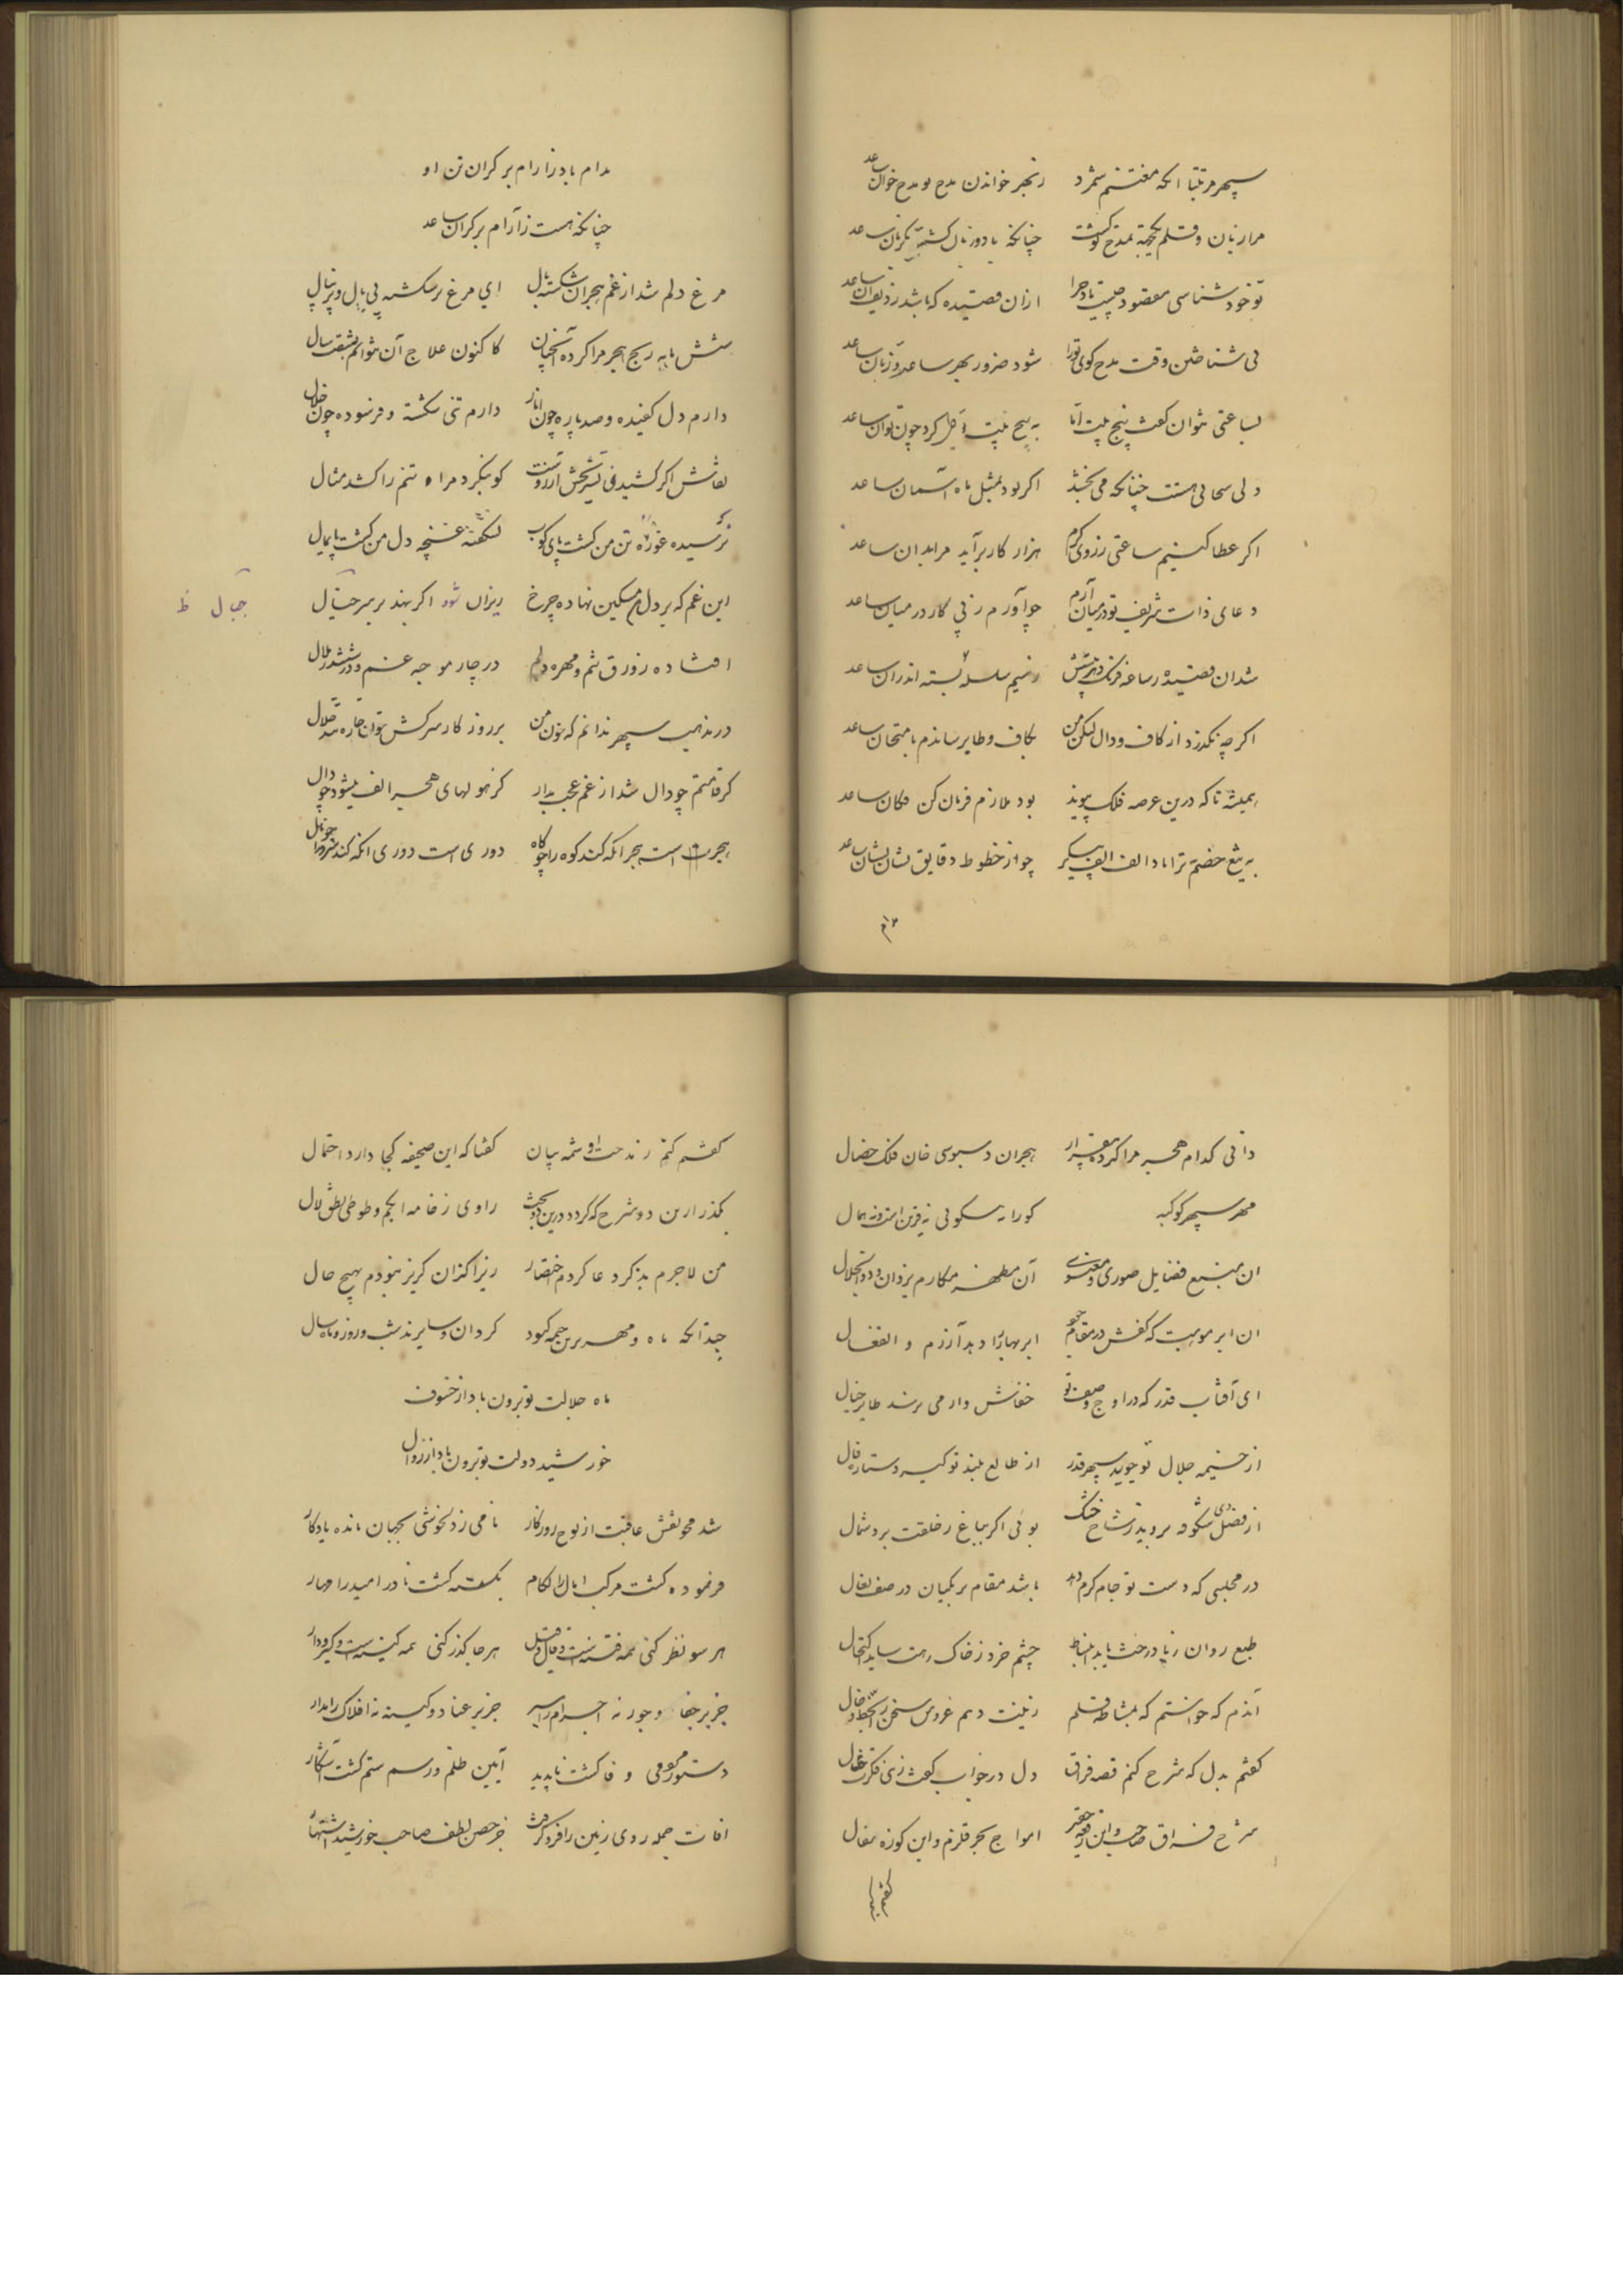 سپهر مرتبتا انکه مغتنم شمرد زنجیر خواندن مدح تو مدح خوان ساعد
مرا زبان و قلم بمدح تو گشت چنانکه با دو زبان گشته ساعد
تو خود شناسی مقصود چیست باد چرا ازان قصیده که باشد ردیف آن ساعد
نی شناختن وقت مدح کوی ترا شود ضرور بهر ساعد و زبان ساعد
بساعتی نتوان گفت پنج بیت اما به پنج بیت کرد چون توان ساعد
ولی سحابی هست چنانکه می بخشد اکر بود بمثل ماه آسمان ساعد
اکر عطا کنیم ساعتی ز روی کرم هزار کار بر آید مرا بدان ساعد
دعای ذات شریف تو در میان آرم چو آورم ز پی کار در میان ساعد
شد ان قصیده بسته اندران ساعد
اکر چه نکذرد از کاف و دال لیکن من بکاف و طا برساندم بامتحان ساعد
همیشه تا که درین عرصه فلک پیوند بود ملازم فرمان کن فکان ساعد
به تیغ خصم ترا باد الف الف پیکر چو از خطوط دقایق نشان نشان ساعد
مدام باد ز ارام بر کران تن او
چنانکه هست ز آرام بر کران ساعد
مرغ دلم شد از غم هجران شکسته بال ای مرغ پر شکسته بی بال و پر بنال
شش ماهه رنج هجر مرا کرده آنچنان کاکنون علاج آن نتوانم بشصت سال
دارم دل کفیده و صد پاره چون انار دارم تنی شکسته و فرسوده چون خلال
نقاش اکر کشیدنی آرزوست کو بنکرد مرا و تنم را کشد مثال
نرسیده غوره تن من کشت پای کوب نشکفته غنچه دل من کشت پایمال
این غم که بر دل من مسکین نهاده چرخ ریزان شود اکر بنهد بر سر جبال
جبال ظ
افتاده زورق تنم و مهره دلم در چار موجه غم و در ششدر ملال
در مذهب سپهر ندانم که خون من بر روز کار سرکش نتوان چاره شد حلال
کر قامتم چو دال شد از غم عجب مدار کز هولهای هجر الف میشود چو دال
هجرت است هجر انکه کند کوه را چو کاه دوری است دوری انکه کند سرو را چو نال
دانی کدام هجر مرا کرده بیقرار هجران دستبوسی خان فلک خصال
مهر سپهر کوکبه کورا به نیکویی نه قرین است و نه همال
ان منبع فضایل صوری و معنوی آن مظهر مکارم یزدان ذو الجلال
ان ابر موهبت که کفش در مقام جود ابر بهار را دهد آزرم و انفعال
ای آفتاب قدر که در اوج وصف تو خفاش وار می نپرد طایر خیال
از خیمه جلال تو جوید سپهر قدر از طالع بلند تو کیرد ستاره فال
از فصل دی شکوفه بروید ز شاخ خشک بوئی اکر بباغ ز خلقت برد شمال
در مجلسی که دست تو جام کرم دهد باشد مقام برمکیان در صف نعال
طبع روان ز یاد رخت یابد انبساط چشم خرد ز خاک رهت ساید اکتحال
آندم که خواستم که بمشاطه قلم زینت دهم عروس سخن را بخط و خال
کفتم بدل که شرح کنم قصه فراق دل در جواب کفت زهی فکرت محال
شرح فراق صاحب و این رقعه حقیر امواج بحر قلزم و این کوزه سفال
کفتم کنم ز مدحت او شمه بیان کفتا که این صحیفه کجا دارد احتمال
بکذر ازین دو شرح که کردد درین دو بحث راوی ز خامه ابکم و طوطی نطق لال
من لاجرم بذکر دعا کردم اختصار زیرا کزان کریز نبودم بهیچ حال
چندانکه ماه و مهر برین خیمه کبود کردان و سایرند شب و روز و ماه و سال
ماه جلالت تو برون باد از خسوف
خورشید دولت تو برون باد از زوال
شد محو نقش عاقبت از لوح روزکار نامی ز دلخوشی بجهان مانده یادکار
فرسوده کشت مرکب امال را لکام بکسسته کشت نادر امید را مهار
هر سو نظر کنی همه فتنه است و قال و قیل هر جا کذر کنی همه کینه است و کیر و دار
جز بر جفا و جور نه اجرام را مسیر جز بر عناد و کینه نه افلاک را مدار
دستور مردمی و وفا کشت ناپدید آیین ظلم و رسم ستم کشت آشکار
افات جمله روی زمین را فرو کرفت جز حصن لطف صاحب خورشید اشتهار
کفتم کنم